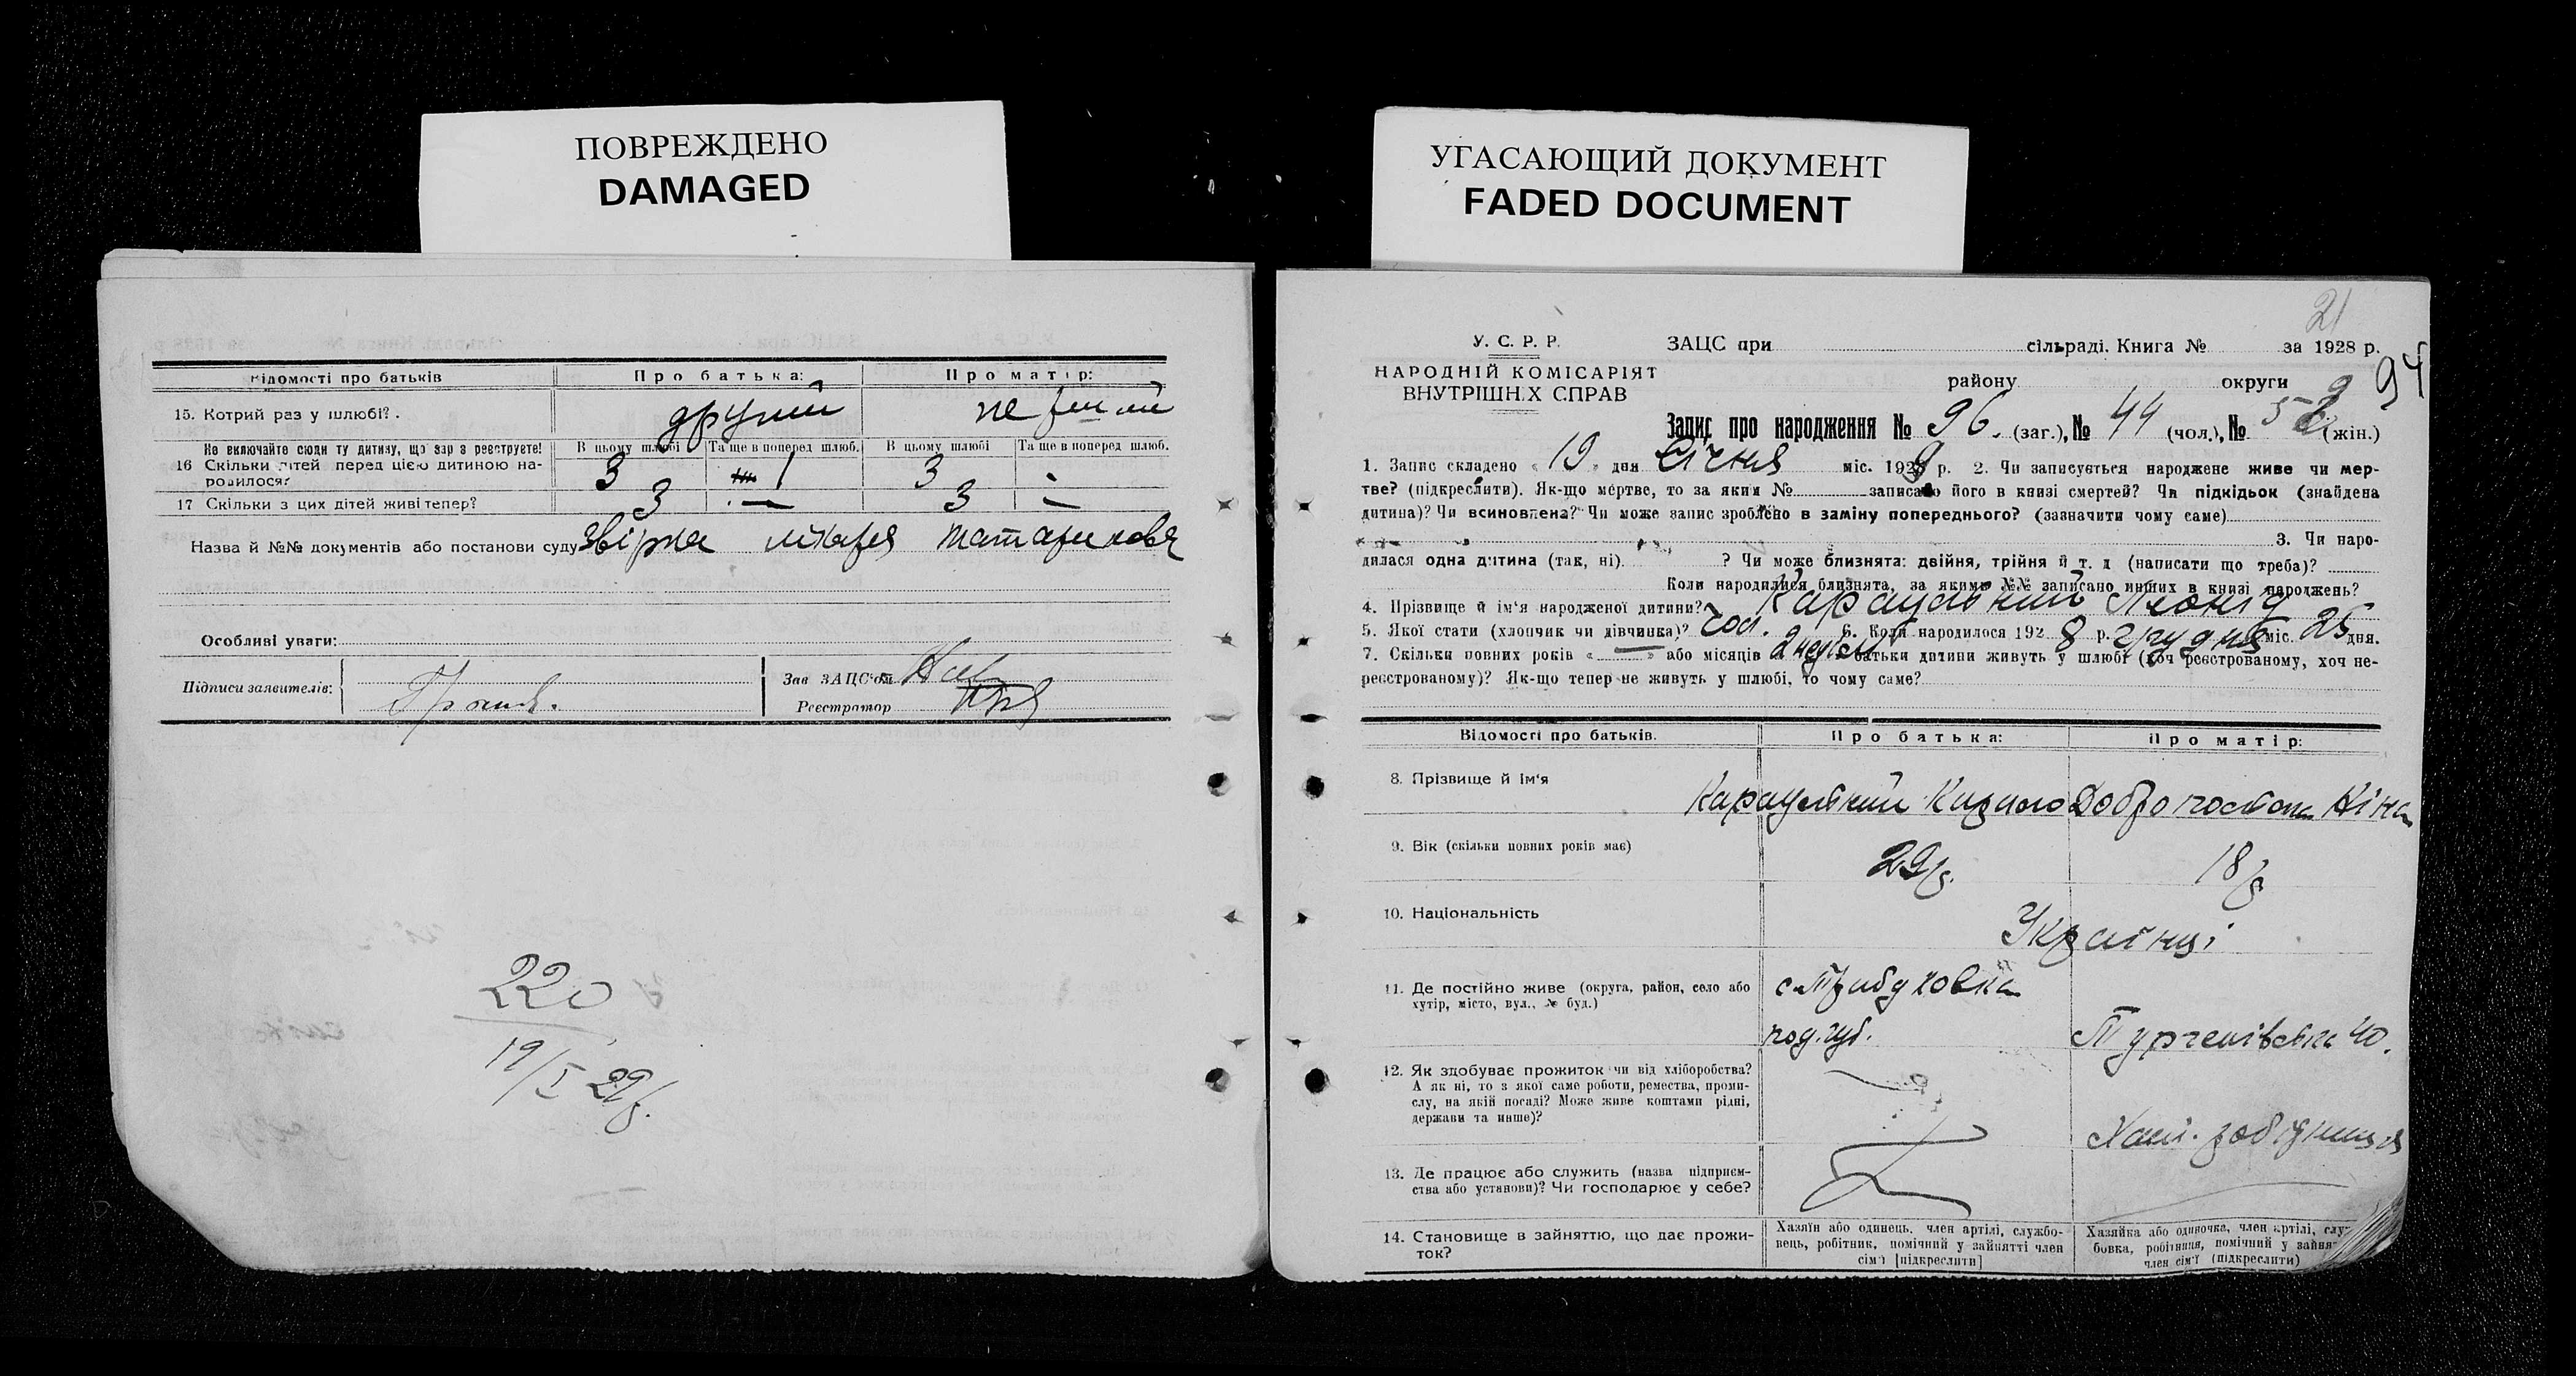 ПОВРЕЖДЕНО
DAMAGED
УГАСАЮЩИЙ ДОКУМЕНТ
FADED DOCUMENT
Відомості про батьків
Про батька:
Про матір:
15. Котрий раз у шлюбі?.
другий
Не включайте сюди ту дитину, що зар з реєструєте!
В цьому шлюбі
Та ще в поперед шлюб.
В цьому шлюбі
Та ще в поперед шлюб.
16 Скільки дітей перед цією дитиною на-
родилося?
3
1
3
17 Скільки з цих дітей живі тепер?
3
—
3
—
Назва й №№ документів або постанови суду
Особливі уваги:
Підписи заявителів:
Зав ЗАЦС'ом
Реєстратор
220
19/I 29р.
21
94
У. С. Р. Р.
НАРОДНІЙ КОМІСАРІЯТ
ВНУТРІШНІХ СПРАВ
ЗАЦС при сільраді. Книга № за 1928 р.
району округи
Запис про народження № 96. (заг.), № 44 (чол.), № (жін.)
1. Запис складено « 19 » дня Січня міс. 1929 р. 2. Чи записується народжене живе чи мер-
тве? (підкреслити). Як-що мертве, то за яким № записано його в книзі смертей? Чи підкідьок (знайдена
дитина)? Чи всиновлена? Чи може запис зроблено в заміну попереднього? (зазначити чому саме)
3. Чи наро-
дилася одна дитина (так, ні) ? Чи може близнята: двійня, трійня й т. д (написати що треба)?
Коли народилися близнята, за якими №№ записано инших в книзі народжень?
4. Прізвище й ім'я народженої дитини? Караульний Леонід
5. Якої стати (хлопчик чи дівчинка)? чол. 6. Коли народилося 1928 р. грудня міс. 25 дня.
7. Скільки повних років « — » або місяців Батьки дитини живуть у шлюбі (хоч реєстрованому, хоч не-
реєстрованому)? Як-що тепер не живуть у шлюбі, то чому саме?
Відомості про батьків.
Про батька:
Про матір:
8. Прізвище й ім'я
Караульний
Ніна
9. Вік (скільки повних років має)
29р.
18р
10. Національність
Українці
11. Де постійно живе (округа, район, село або
хутір, місто, вул., № буд.)
под. губ.
Тургенівська 40.
12. Як здобуває прожиток чи від хліборобства?
А як ні, то з якої саме роботи, ремества, проми-
слу, на якій посаді? Може живе коштами рідні,
держави та инше)?
13. Де працює або служить (назва підприєм-
ства або установи)? Чи господарює у себе?
14. Становище в зайняттю, що дає прожи-
ток?
Хазяїн або одинець, член артілі, службо-
вець, робітник, помічний у зайнятті член
сім'ї [підкреслити]
Хазяйка або одиночка, член артілі,
бовка, робітниця, помічний у
член сім'ї (підкреслити)